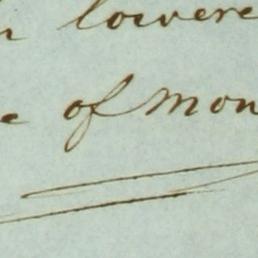 lowere
of Mon